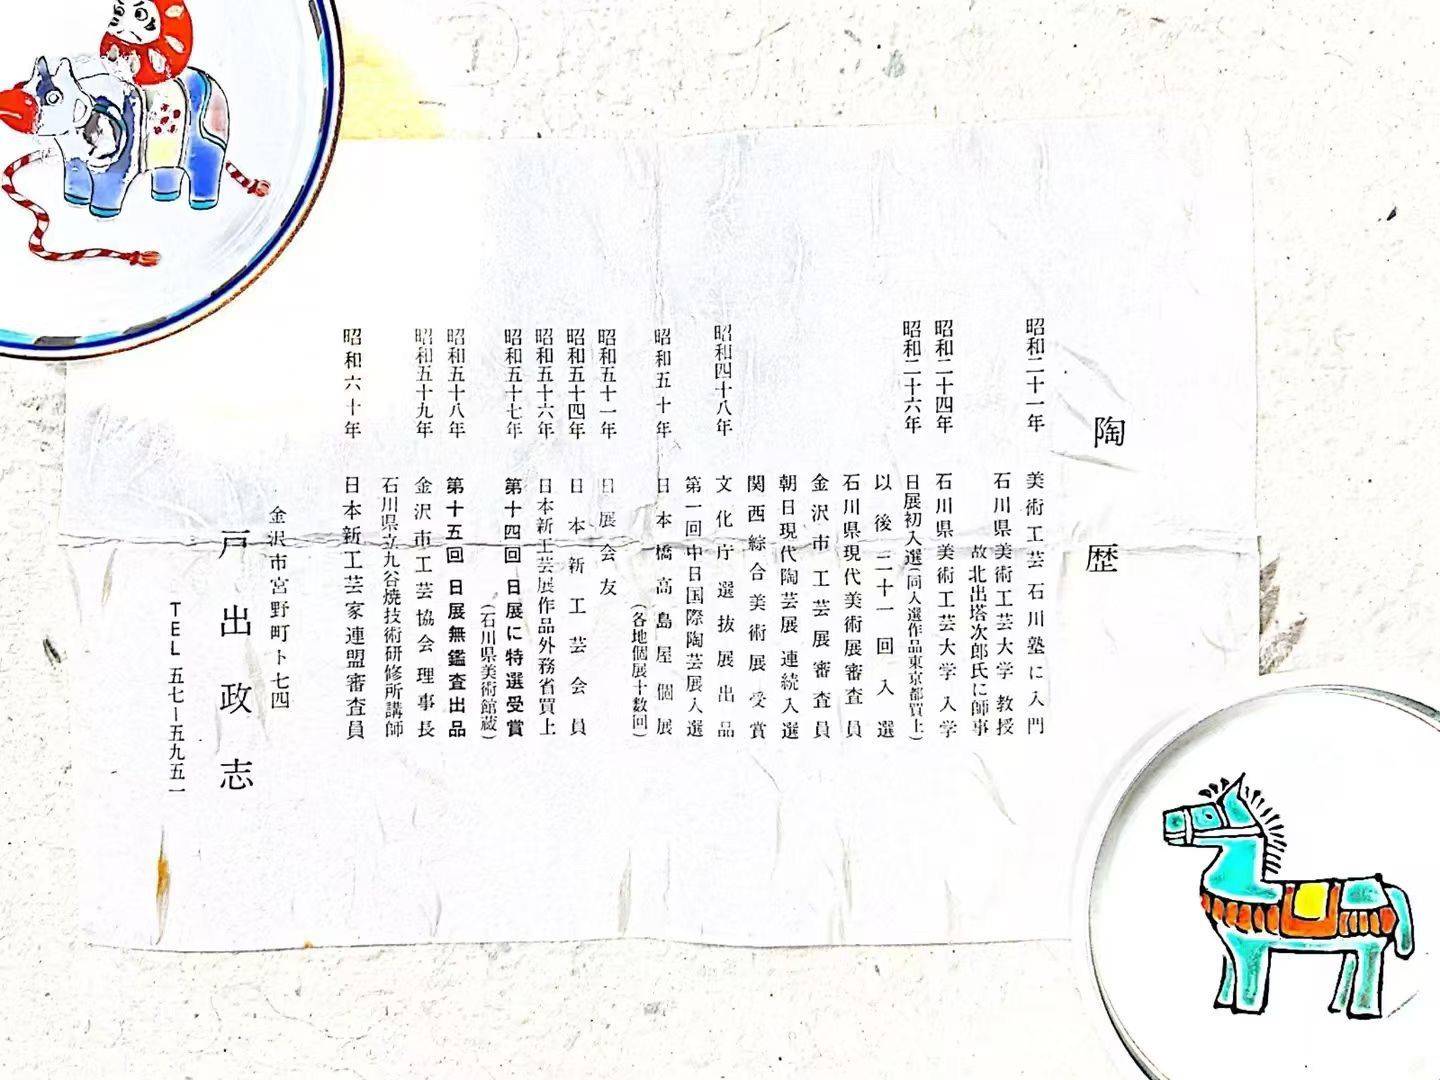 陶歴
昭和二十一年 美術工芸石川塾に入門
石川県美術工芸大学教授
故北出塔次郎氏に師事
昭和二十四年 石川県美術工芸大学入学
昭和二十六年 日展初入選(同入選作品東京都買上)
以後二十一回入選
石川県現代美術展審査員
金沢市工芸展審査員
朝日現代陶芸展連続入選
関西綜合美術展受賞
昭和四十八年 文化庁選抜展出品
第一回中日国際陶芸展入選
昭和五十年 日本橋高島屋個展
(各地個展十数回)
昭和五十一年 日展会友
昭和五十四年 日本新工芸会員
昭和五十六年 日本新工芸展作品外務省買上
昭和五十七年 第十四回 日展に特選受賞
(石川県美術館蔵)
昭和五十八年 第十五回 日展無鑑査出品
昭和五十九年 金沢市工芸協会理事長
石川県立九谷焼技術研修所講師
昭和六十年 日本新工芸家連盟審査員
金沢市宮野町ト七四
戸出政志
TEL 五七―五九五一